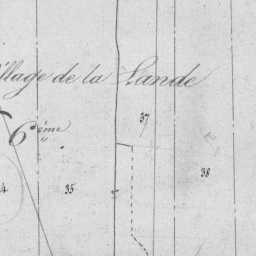 illage de la Lande
6ème
37
38
35
4